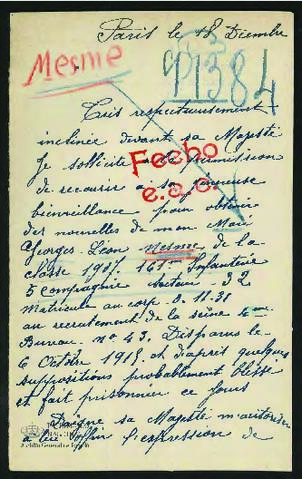 Paris le 18 Dicembre
Mesme
91384
Très respectueusement
inclinée devant sa Majesté
Je sollicite la permission
Feebo
de recourir à sa
e.a.c.
bienveillance pour obtenir
des nouvelles de mon Mari
Georges Léon Mesme de la
classe 1907. 161me Infanterie
5 compagnie Secteur - 32
Matricule au corp 0.11.31
au recrutement de la seine
Bureau. no 43. Disparus le
6 Octobre 1915 et d'après quelques
suppositions probablement blessé
et fait prisonnier ce jours
Daigne sa Majesté m'autoriser
à lui offrir l'expression de